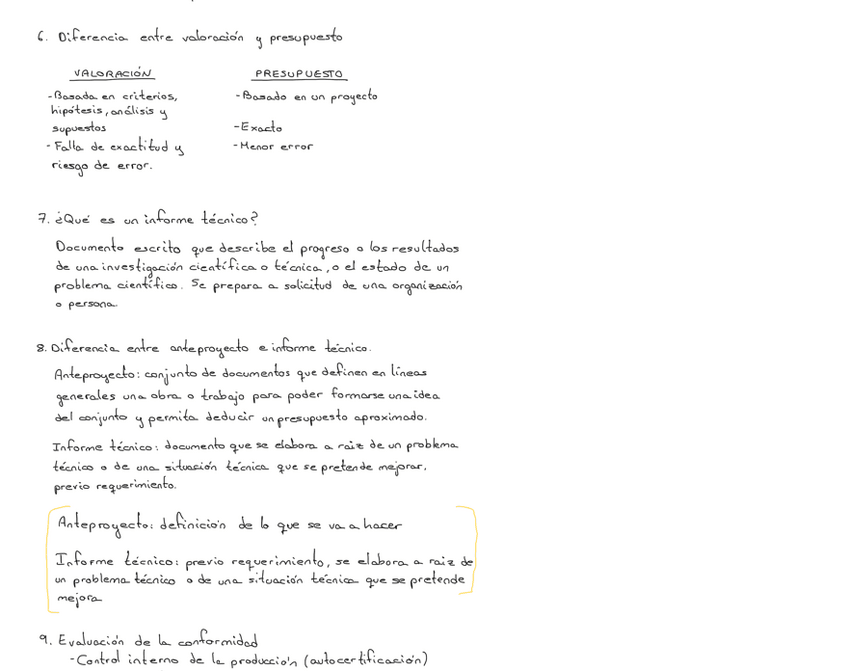 6. Diferencia entre valoración y presupuesto
VALORACIÓN
-Basada en criterios,
hipótesis, análisis y
supuestos
- Falla de exactitud y
riesgo de error.
PRESUPUESTO
-Basado en un proyecto
-Exacto
-Menor error
7. ¿Qué es un informe técnico?
Documento escrito que describe el progreso o los resultados
de una investigación científica o técnica, o el estado de un
problema científico. Se prepara a solicitud de una organización
o persona.
8. Diferencia entre anteproyecto e informe técnico.
Anteproyecto: conjunto de documentos que definen en líneas
generales una obra o trabajo para poder formarse una idea
del conjunto y permita deducir un presupuesto aproximado.
Informe técnico: documento que se elabora a raiz de un problema
técnico o de una situación técnica que se pretende mejorar,
previo requerimiento.
Anteproyecto: definicion de lo que se va a hacer
Informe técnico: previo requerimiento, se elabora a raiz de
un problema técnico o de una situación técnica que se pretende
mejora
9. Evaluación de la conformidad
-Control interno de la producción (autocertificación)